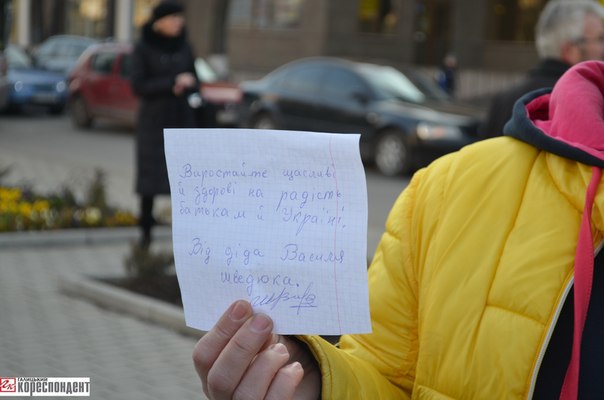 Виростайте щасливі
й здорові на радість
батькам й Україні.
Від діда Василя
Шведюка.
ГАЛИЦЬКИЙ
КОРЕСПОНДЕНТ